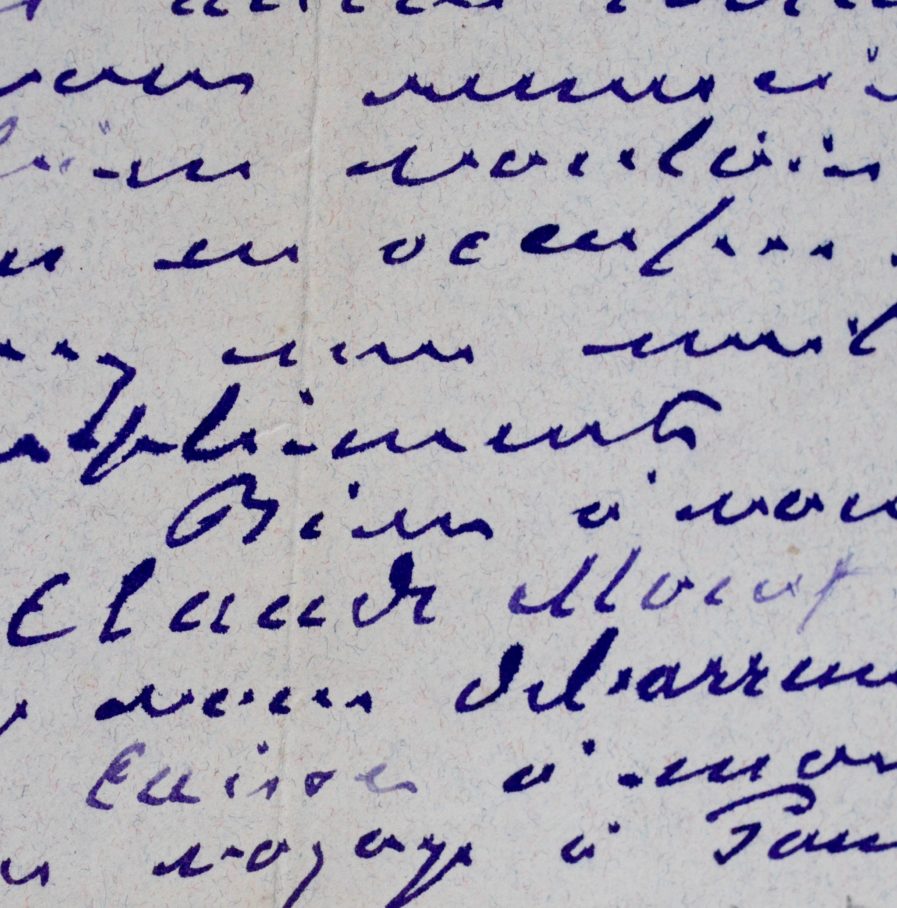 vous remerci
bien vouloir
en occuper.
mil
compliments
Bien à vous
Claude Monet
vous débarrass
caisse à mon
voyage à Paris